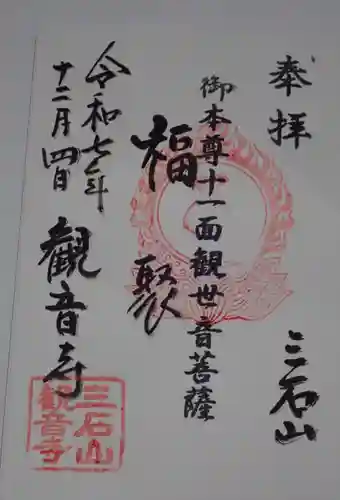 奉拝
三石山
御本尊十一面観世音菩薩
福聚
観音寺
令和七年
十二月四日
三石山
観音寺